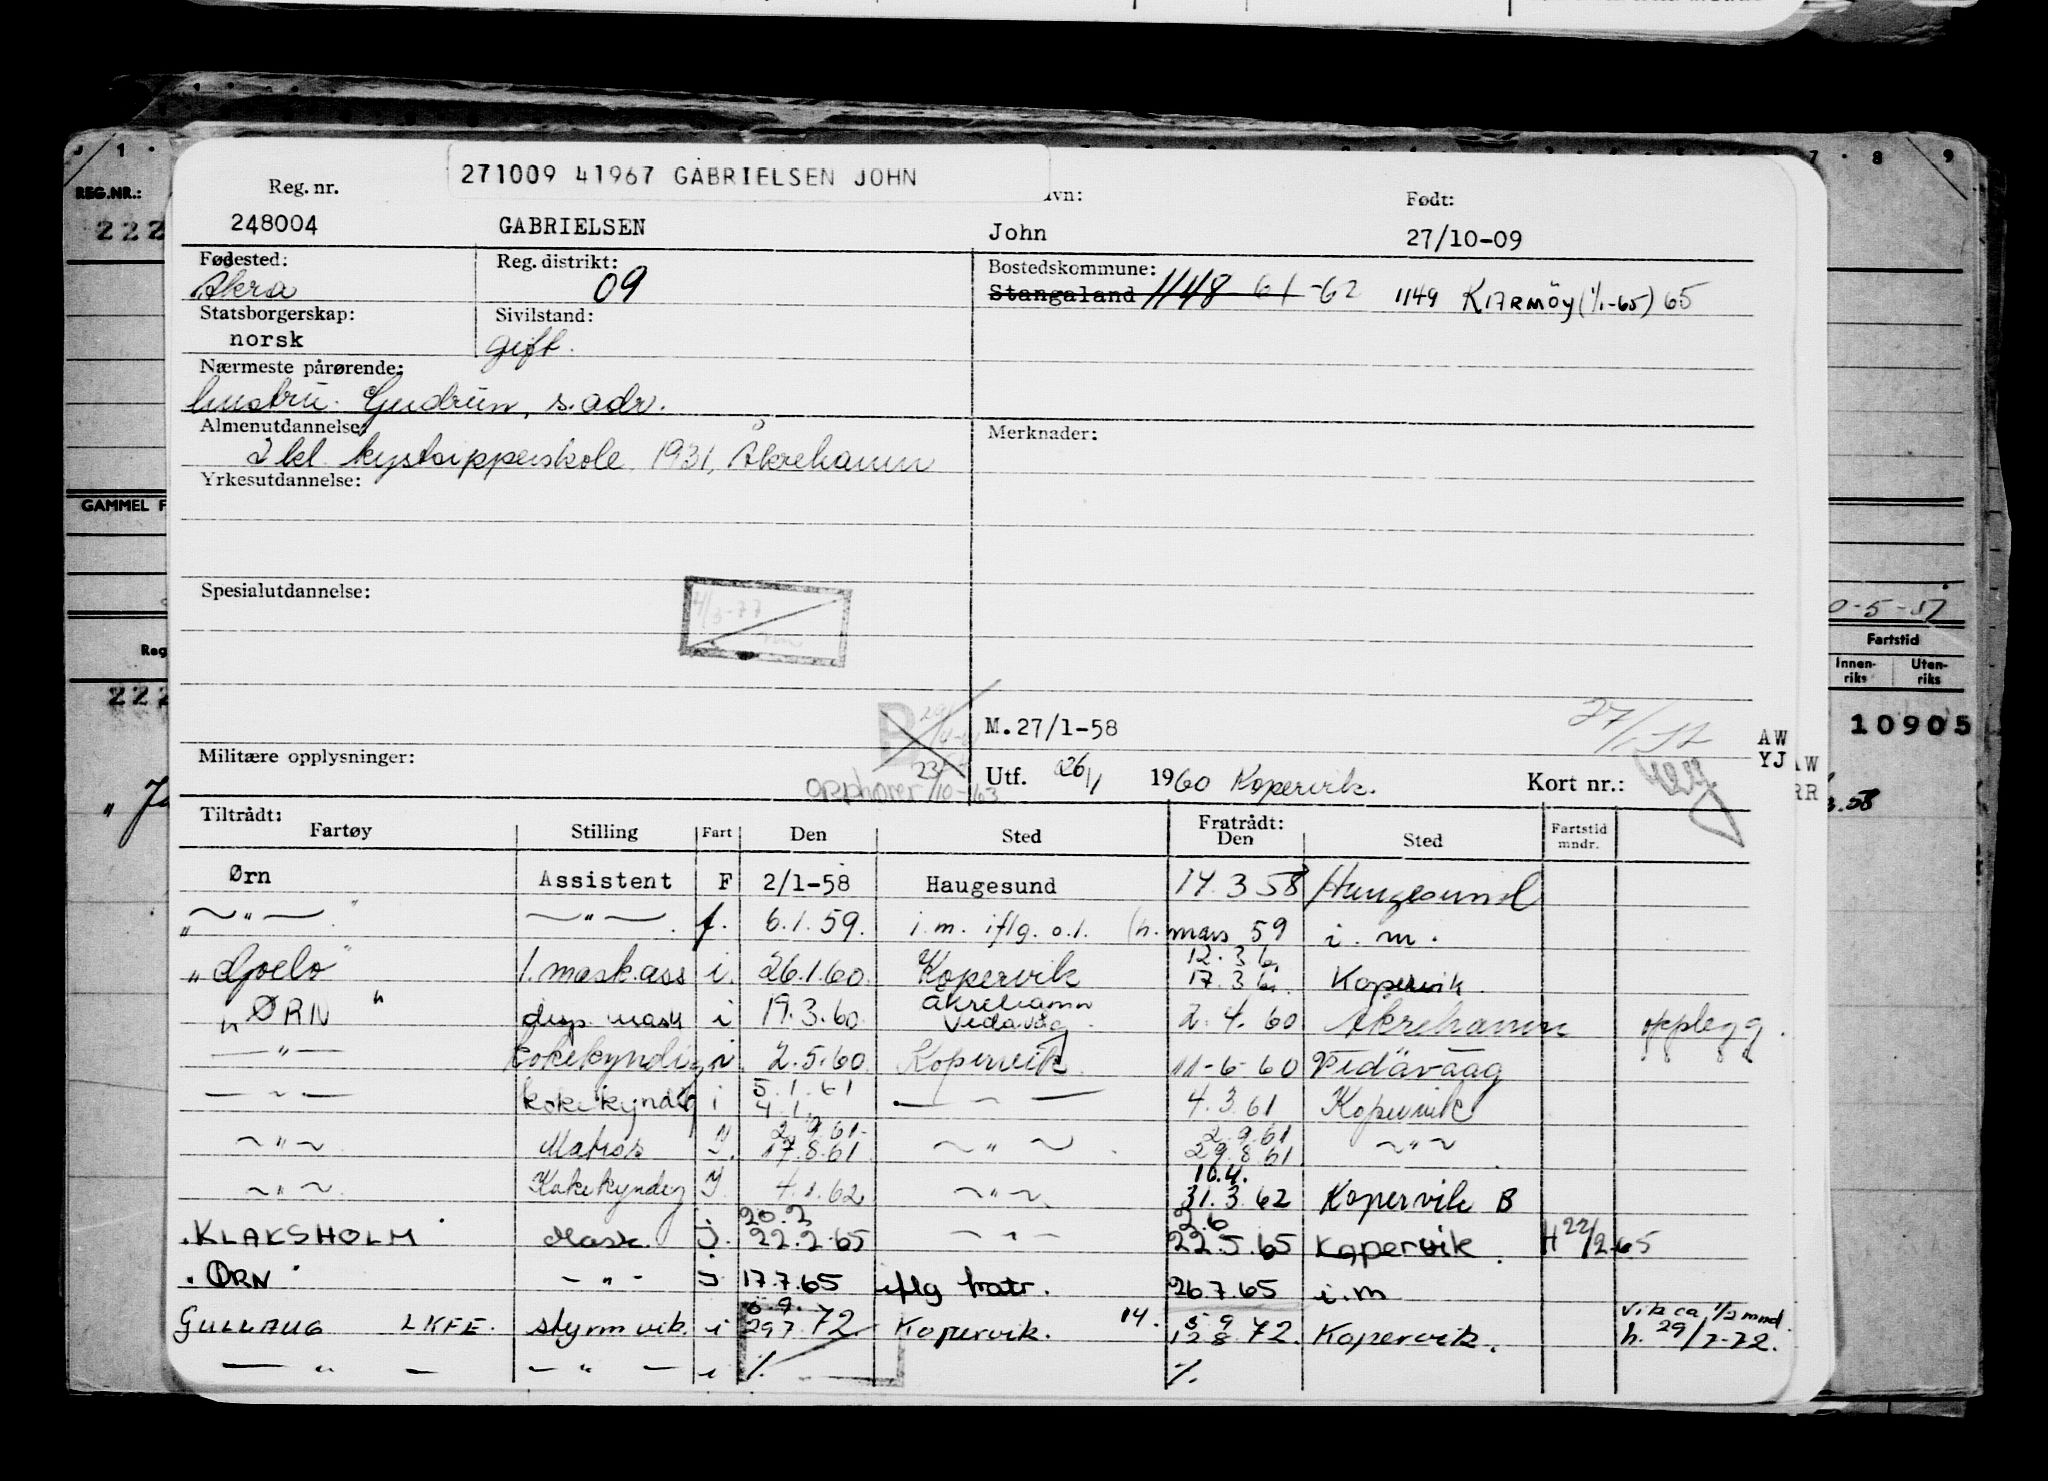 271009 41967 GABRIELSEN JOHN
Reg. nr.
avn:
Født:
248004 GABRIELSEN John 27/10-09
Fødested: Reg. distrikt: Bostedskommune:
Åkra 09 Stangaland 1148 61-62 1149 KARMÖY (1/1-65) 65
Statsborgerskap: Sivilstand:
norsk gift.
Nærmeste pårørende:
hustru. Gudrun, s. adr.
Almenutdannelse: Merknader:
2 kl. kystskipperskole 1931, Åkrehamn
Yrkesutdannelse:
Spesialutdannelse:
4/3-77
M.27/1-58
Militære opplysninger:
opphører 23/10-63
Utf. 26/1 1960 Kopervik. Kort nr.:
AW
YJ
Tiltrådt: Fratrådt:
Fartøy Stilling Fart Den Sted Den Sted Fartstid mndr.
Ørn Assistent F 2/1-58 Haugesund 14.3 58 Haugesund
" — " — f. 6.1.59. i.m. iflg. o.l. (h. mars 59 i.m.
"Goelo" 1. mask.ass i. 26.1.60. Kopervik 12.3 6. 17.3 6. Kopervik.
"ØRN" disp. mask i 19.3.60 Åkrehamn Vedavåg. 2.4.60 Åkrehamn opplegg.
— " — kokekyndig i 2.5.60 Kopervik 11-6-60 Vedavaag
— " — kokekyndig i 5.1.61 4.1. — " — 4.3.61 Kopervik
— " — Matros 2.9.61 17.8.61 — " — 2.9.61 29.8.61 — " —
— " — Kokekyndig 4.1.62 — " — 10.4. 31.3.62 Kopervik B
"KLAKSHOLM" Mask. j. 20.2 22.2.65 — " — 2.6 22.5.65 Kopervik. H 22/2-65
"ØRN" — " — j 17.7.65 iflg fratr. 26.7.65 i.m
GULLAUG LKFE. styrm vik. i 5.9. 29.7.72 Kopervik. 14. 5 9 12 8 72. Kopervik. vik ca 1/2 mnd. h. 29/7-72.
— " — — " — i %. %.
REG.NR.:
222
GAMMEL F
Reg
222
1 7 8 9
0-5-57
Fartstid
Innen-riks Uten-riks
10905
AW
RR
.58